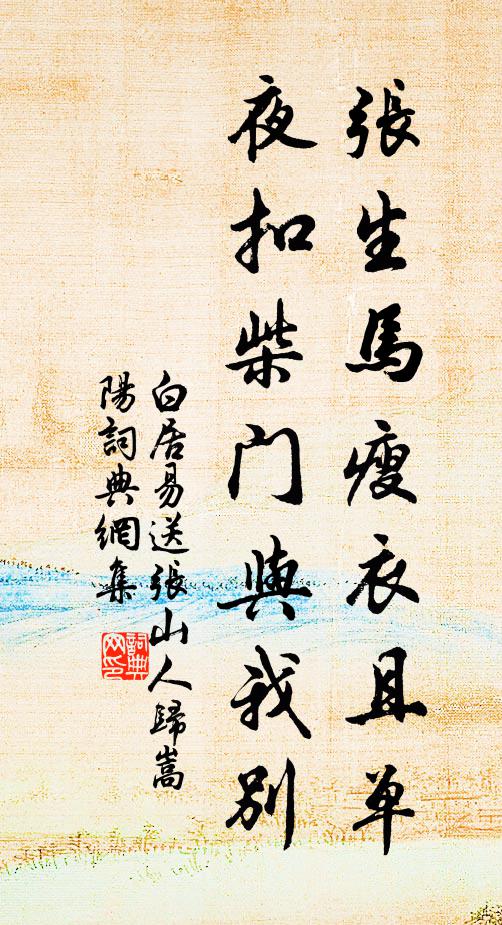 張生馬瘦衣且单
夜扣柴门與我别
白居易送張山人歸嵩
陽詞典網集
詞典网印